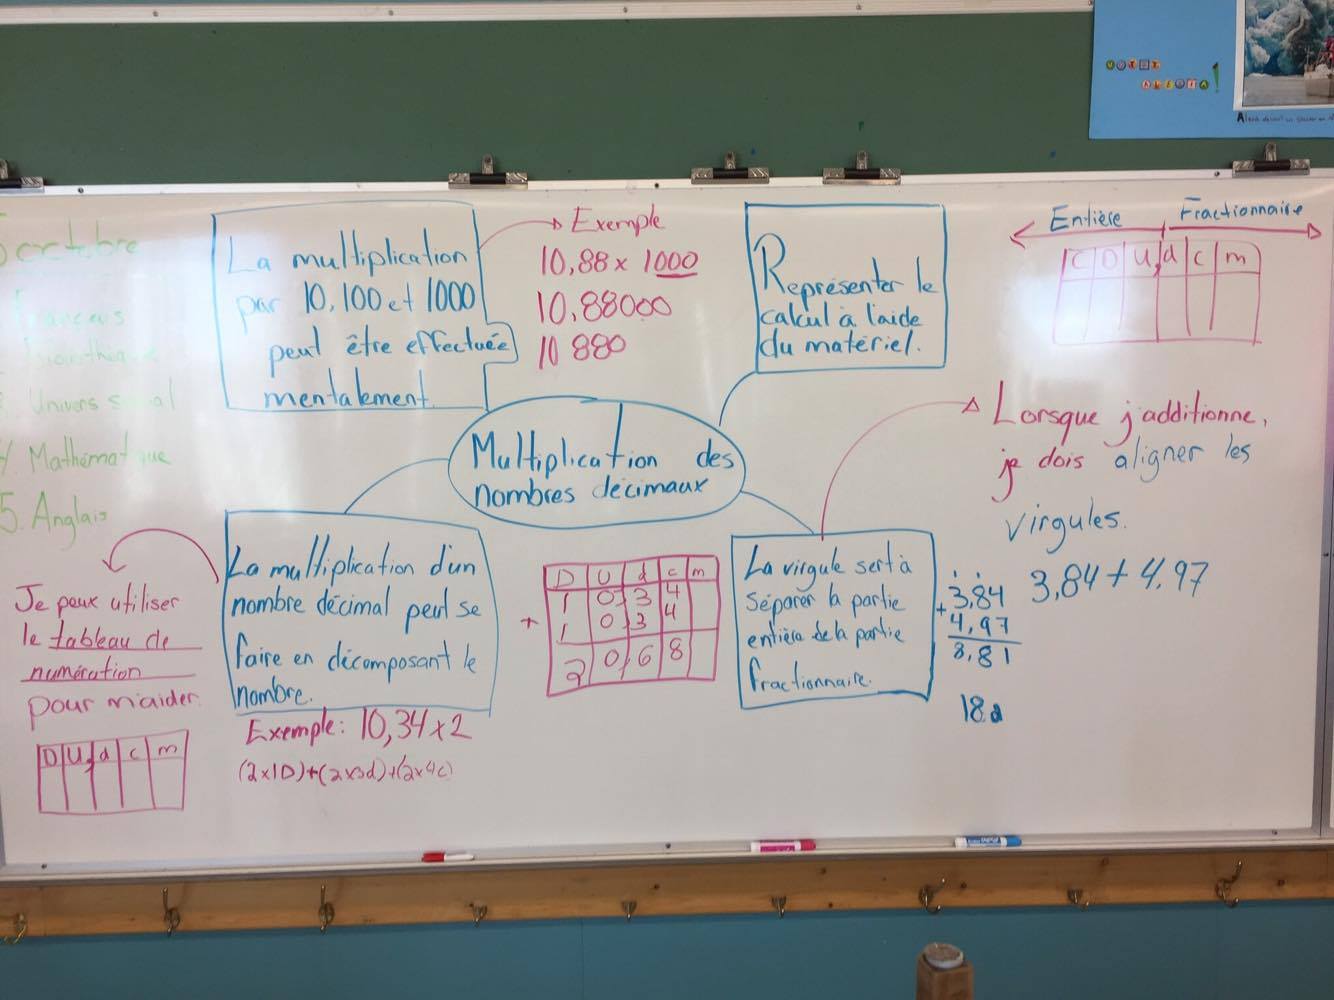 octobre
Univers social
4. Mathématique
5. Anglais
La multiplication
par 10, 100 et 1000
peut être effectuée
mentalement.
Exemple
10,88 x 1000
10,88000
10 880
Représenter le
calcul à l'aide
du matériel.
Entière Fractionnaire
C D U, d c m
Multiplication des
nombres décimaux
Lorsque j'additionne,
je dois aligner les
virgules.
3,84 + 4,97
3,84
+ 4,97
8,81
18d
La virgule sert à
séparer la partie
entière de la partie
fractionnaire.
La multiplication d'un
nombre décimal peut se
faire en décomposant le
nombre.
Exemple: 10,34 x 2
(2x1D)+(2x3d)+(2x4c)
D U d c m
1 0, 3 4
+ 1 0, 3 4
2 0, 6 8
Je peux utiliser
le tableau de
numération
pour m'aider.
D U, d c m